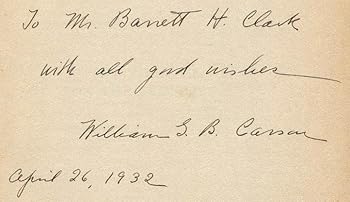 To Mr. Barrett H. Clark
with all good wishes
William G. B. Carson
April 26, 1932